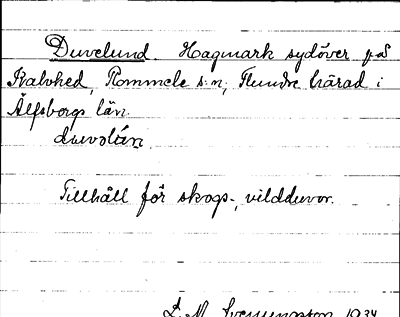 Duvelund. Hagmark sydöver på
Kalvhed, Rommele s:n, Flundre härad i
Älfsborgs län.
duvolún
Tillhåll för skogs-, vildduvor.
1934